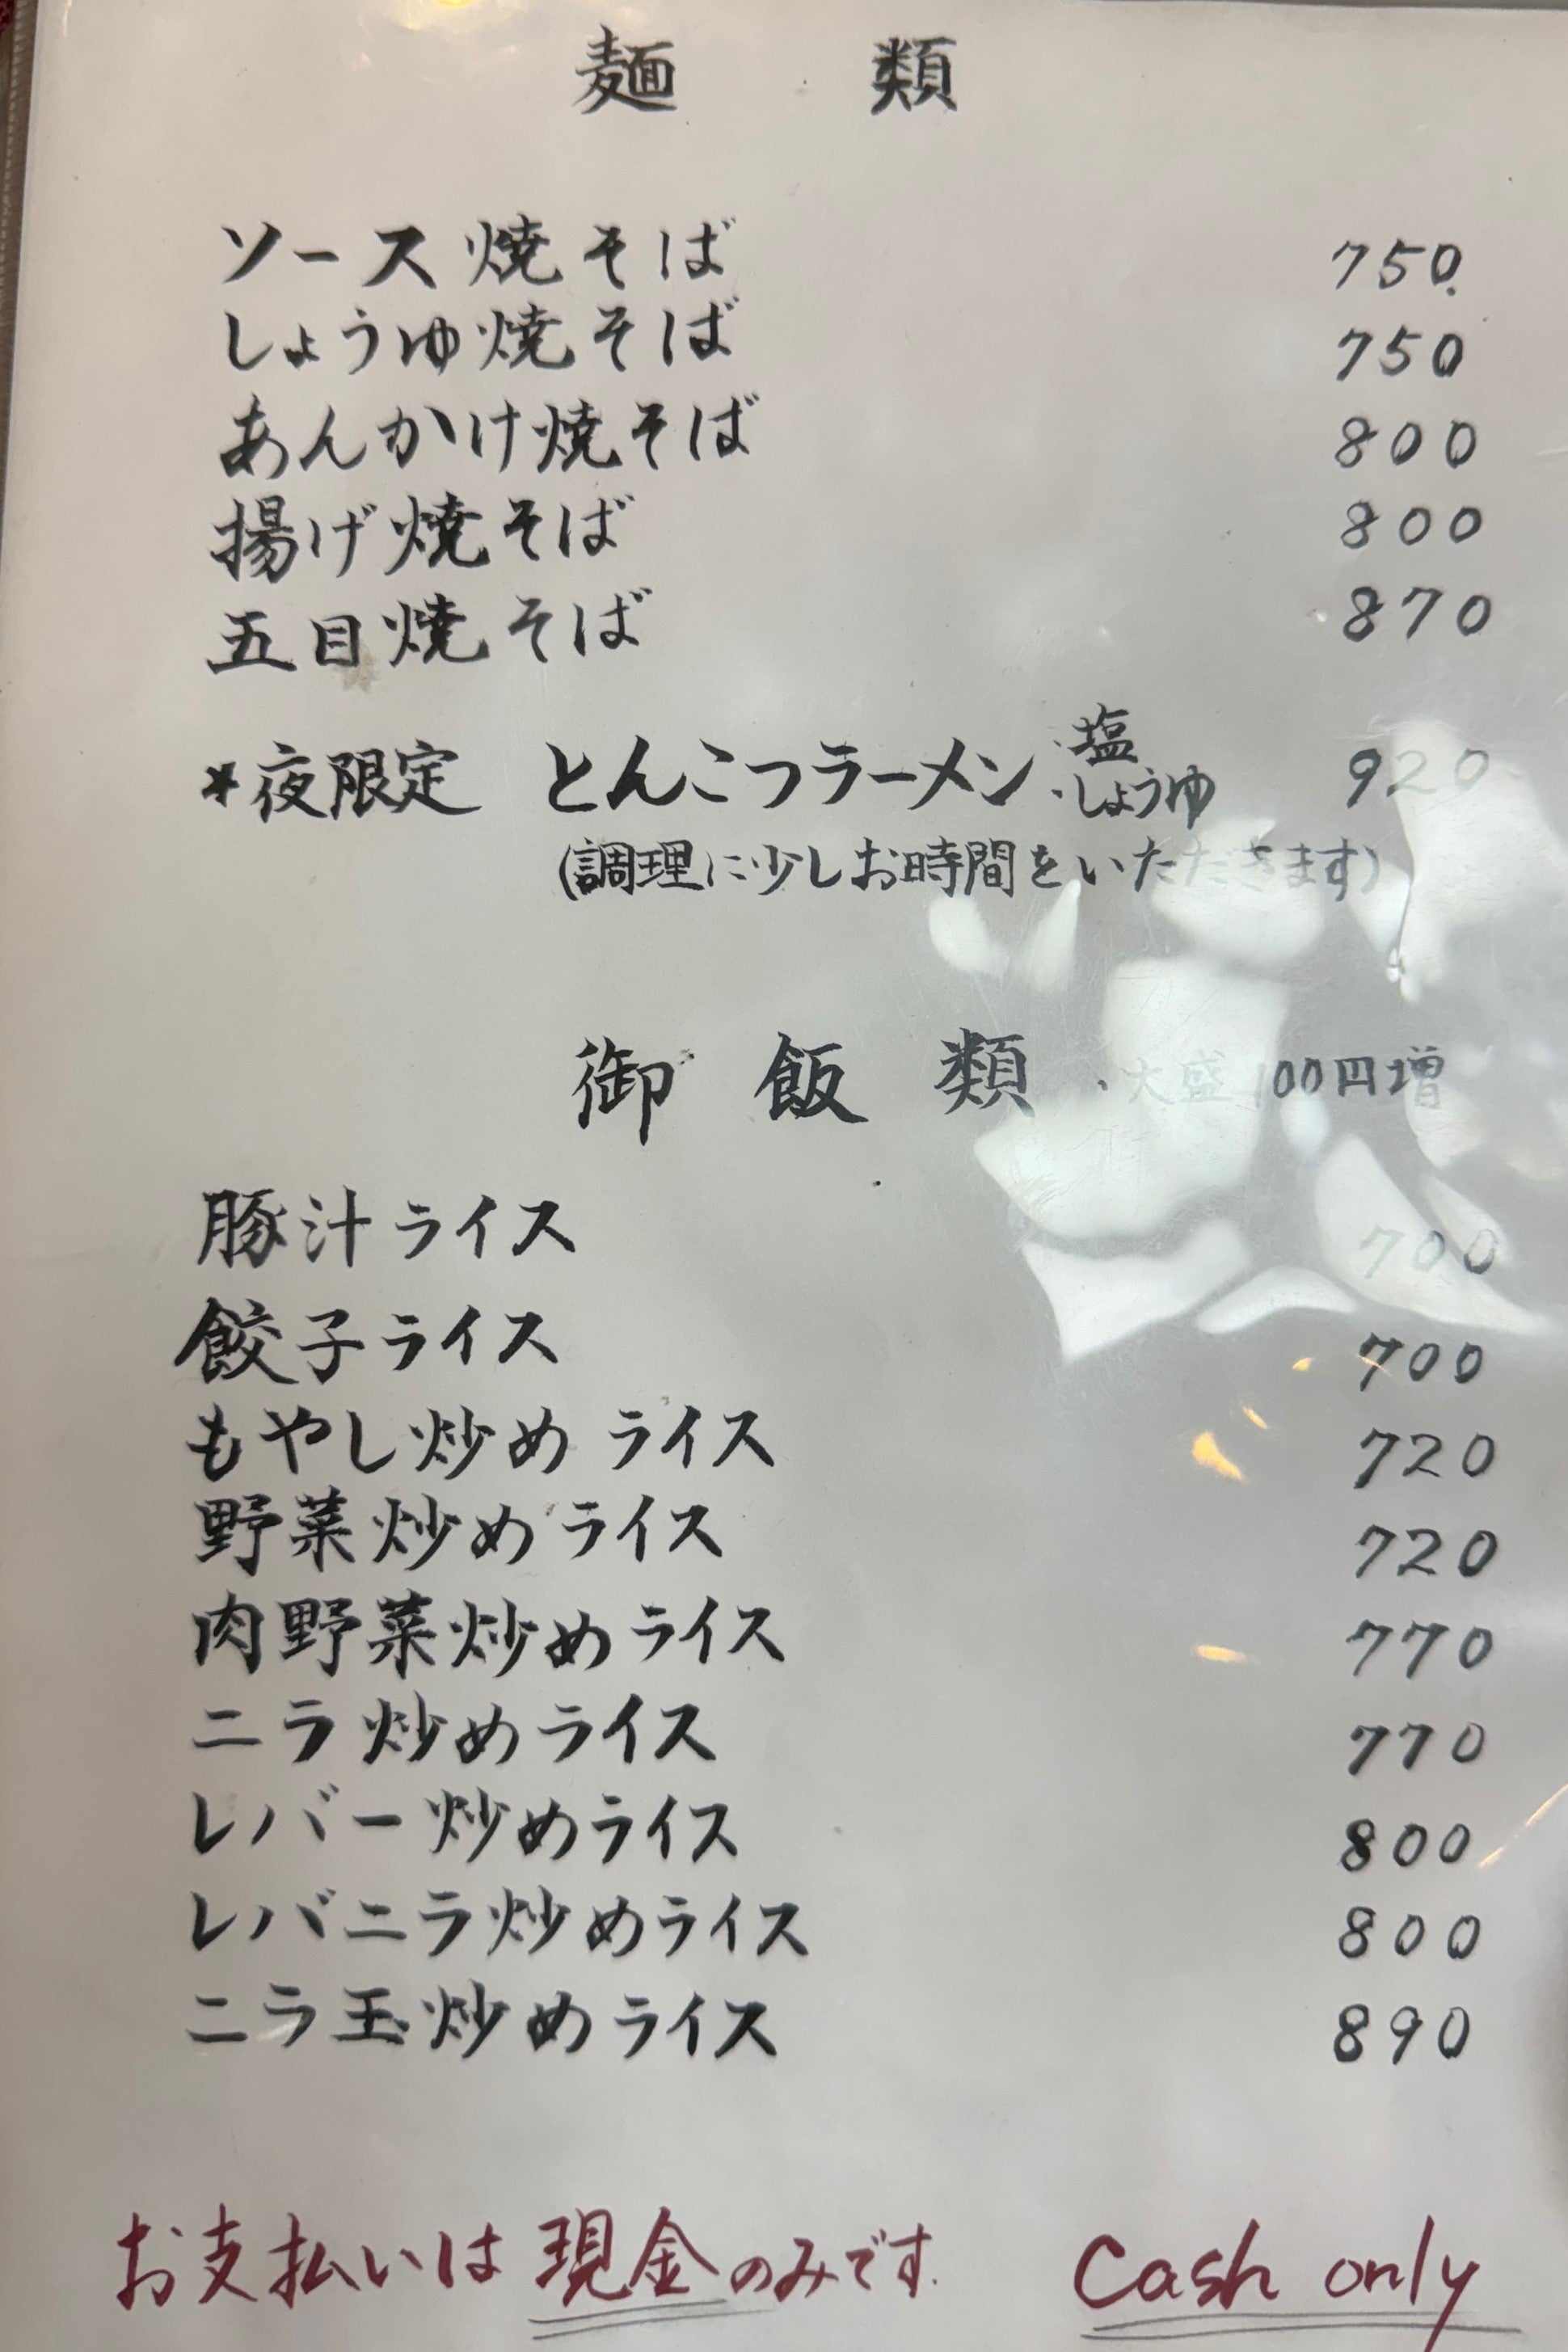 麺 類
ソース焼そば 750
しょうゆ焼そば 750
あんかけ焼そば 800
揚げ焼そば 800
五目焼そば 870
*夜限定 とんこつラーメン ・塩 ・しょうゆ 920
(調理に少しお時間をいただきます)
御 飯 類 ・大盛100円増
豚汁ライス 700
餃子ライス 700
もやし炒めライス 720
野菜炒めライス 720
肉野菜炒めライス 770
ニラ炒めライス 770
レバー炒めライス 800
レバニラ炒めライス 800
ニラ玉炒めライス 890
お支払いは現金のみです. Cash only